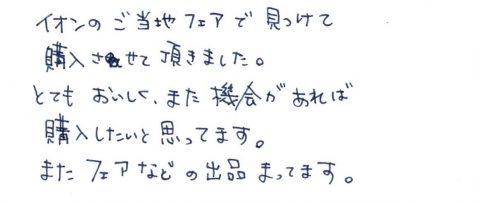 イオンの ご当地フェアで 見つけて
購入させて頂きました。
とても おいしく、また機会があれば
購入したいと思ってます。
またフェアなどの出品まってます。